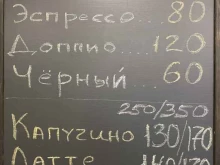 Эспрессо... 80
Доппио... 120
Чёрный... 60
250/350
Капучино 130/170
Латте 140/170